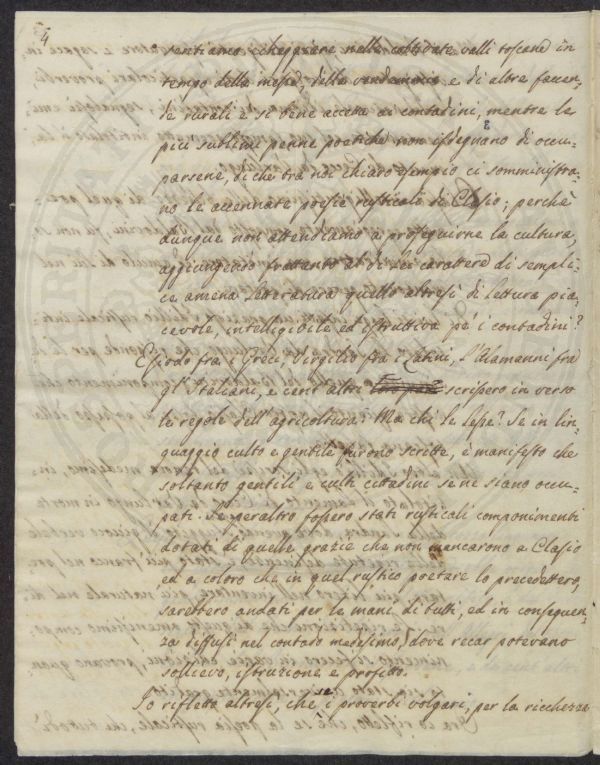 4
sentiamo echeggiare nelle coltivate valli toscane in
tempo della messe, della vendemmia e di altre faccen-
de rurali è sì bene accetta ai contadini, mentre le
più sublimi penne poetiche non isdegnano di occu-
parsene, di che tra noi chiaro esempio ci somministra-
no le accennate poesie rusticali di Clasio; perchè
dunque non attendiamo a proseguirne la cultura,
aggiungendo frattanto al di lei carattere di sempli-
ce amena letteratura quello altresì di lettura pia-
cevole, intelligibile ed istruttiva pe' i contadini?
Esiodo fra i Greci, Virgilio fra i Latini, l'Alamanni fra
gl'Italiani, e cent'altri scrissero in verso
le regole dell'agricoltura: Ma chi le lesse? Se in lin-
guaggio culto e gentile furono scritte, è manifesto che
soltanto gentili e culti cittadini se ne siano occu-
pati. Se peraltro fossero stati rusticali componimenti
dotati di quelle grazie che non mancarono a Clasio
ed a coloro che in quel rustico poetare lo precedettero,
sarebbero andati per le mani di tutti, ed in conseguen-
za diffusi nel contado medesimo, dove recar potevano
sollievo, istruzione e profitto.
Io rifletto altresì, che se i proverbi volgari, per la ricchezza